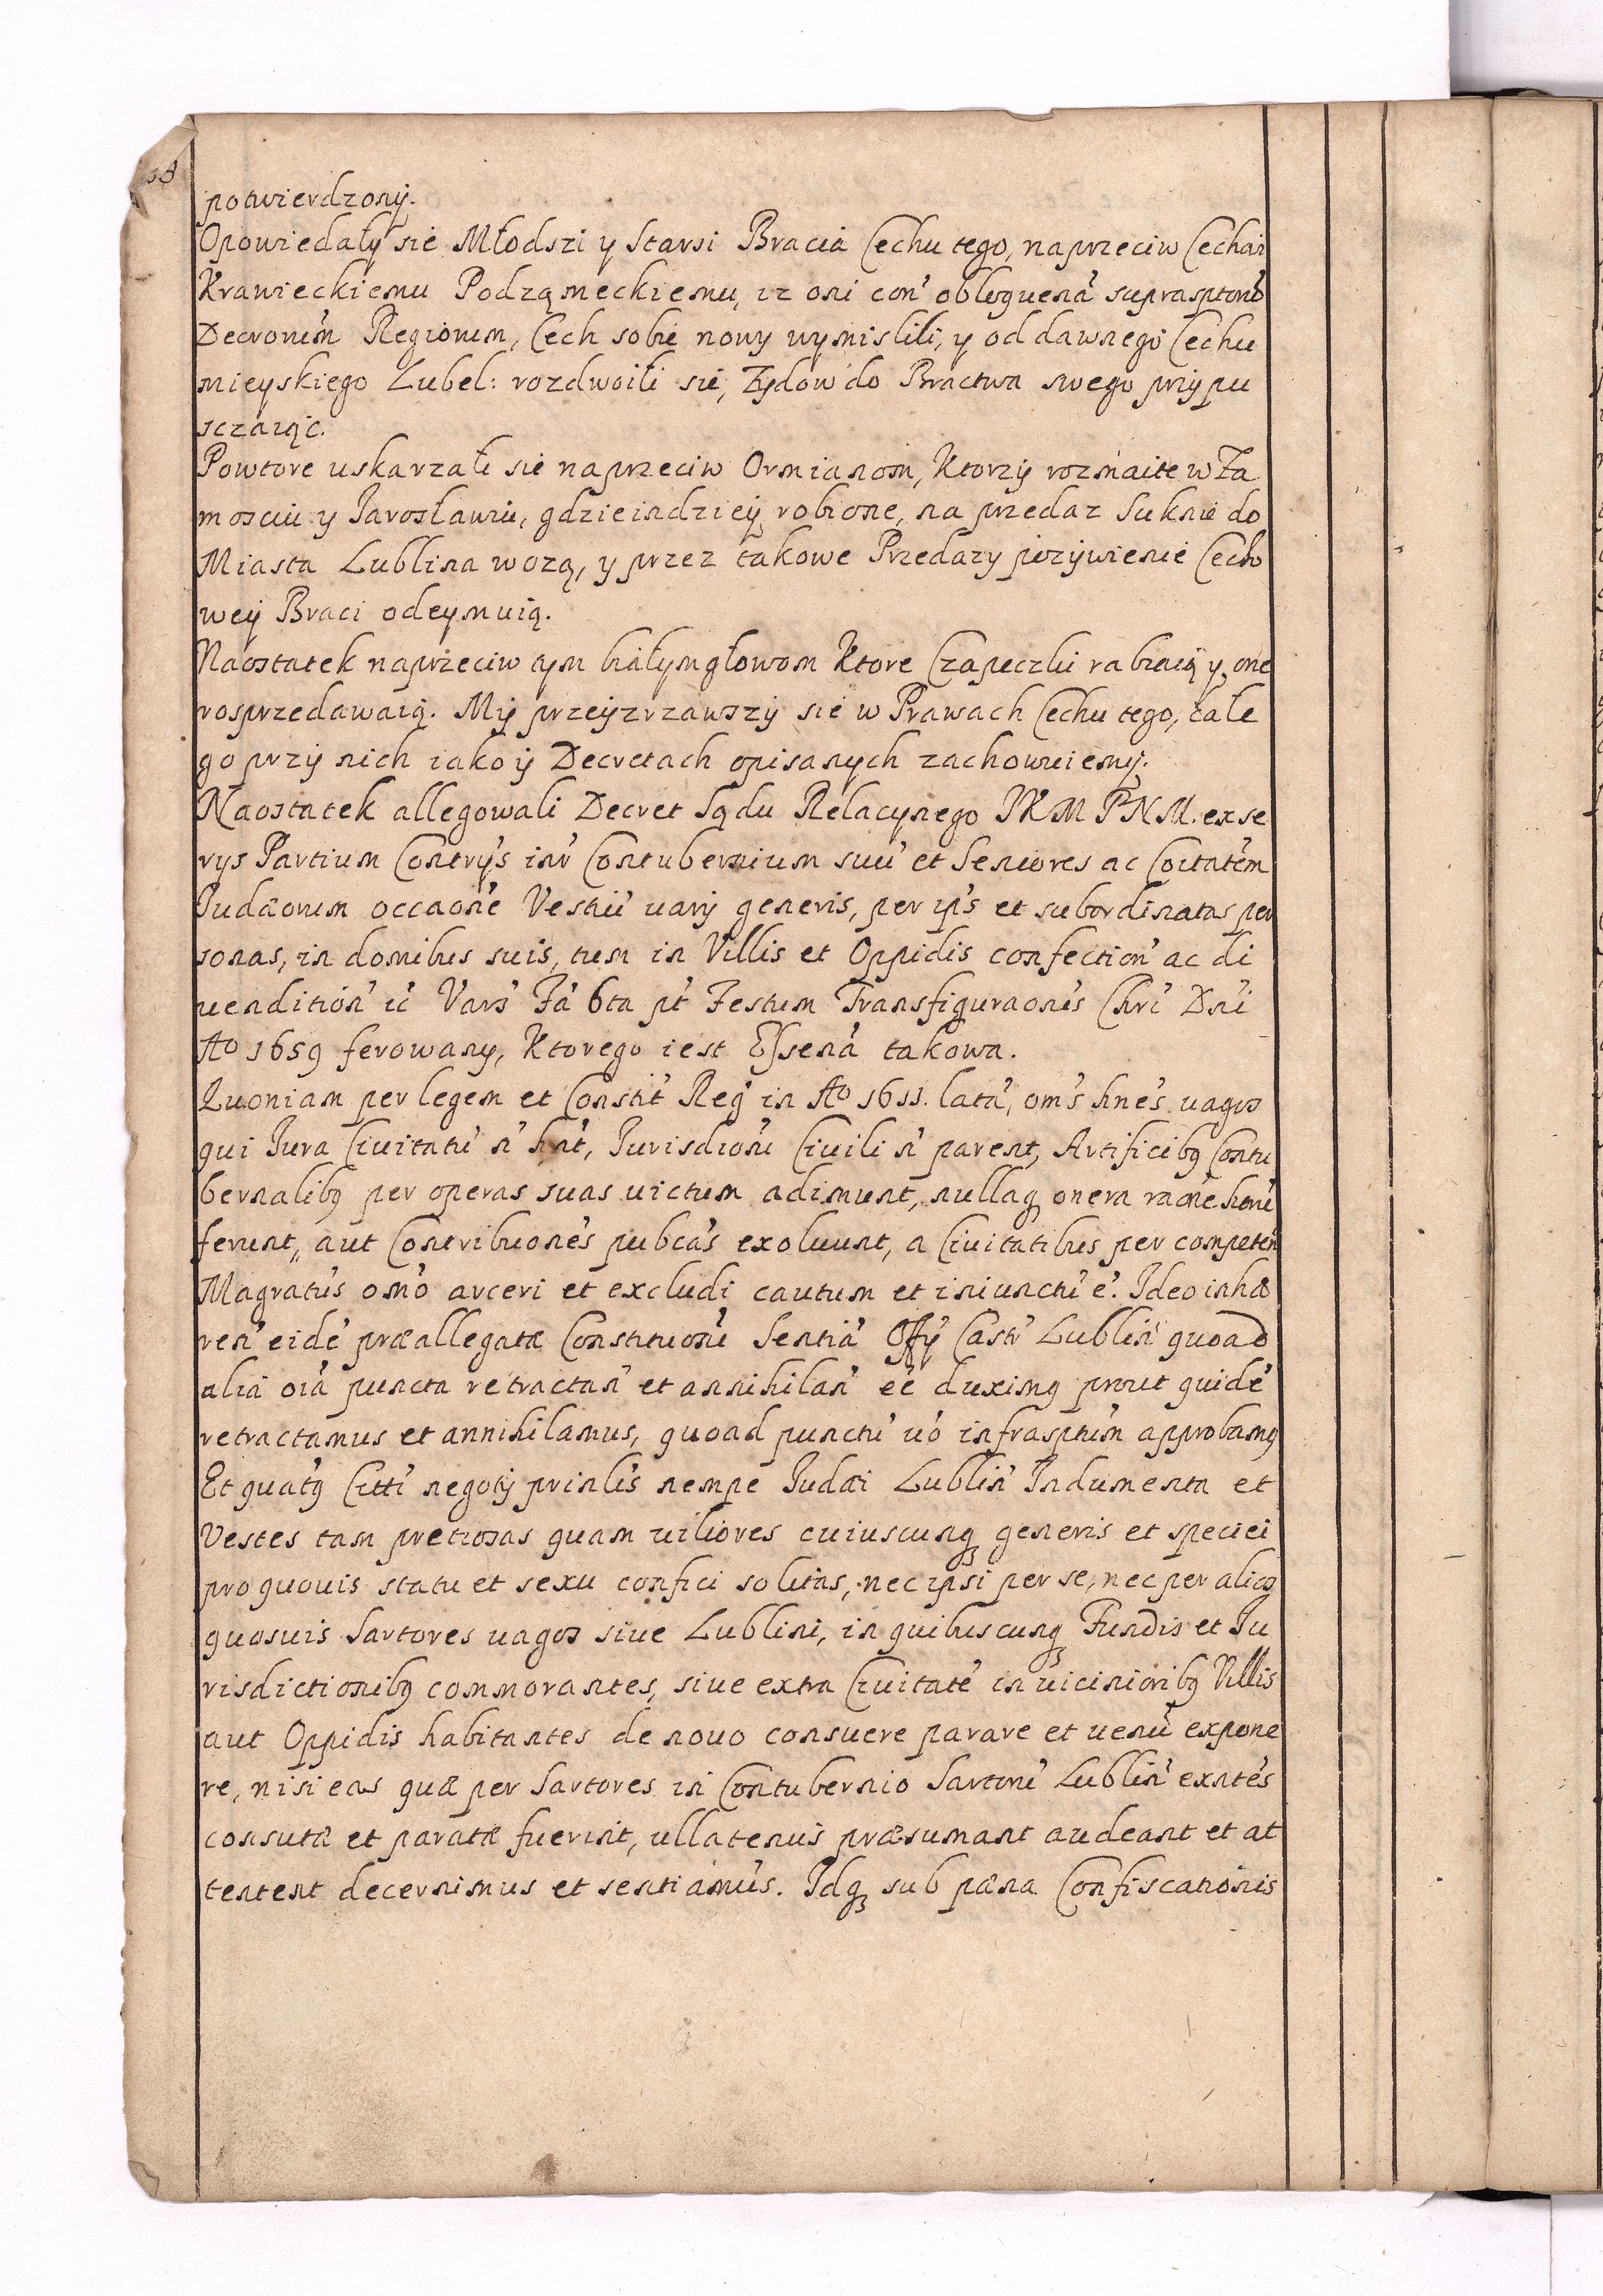 38
potwierdzony.
Opowiedały się Młodszi y Starsi Bracia Cechu tego, naprzeciw Cechowi
Krawieckiemu Podzameckiemu, iz oni con' obloquena' suprasptonb
Decronem' Regionem, Cech sobie nowy wymislili, y od dawnego Cechu
mieyskiego Lubel: rozdwoili się, Zydow do Bractwa swego przypu
sczaiąc.
Powtore uskarzali się naprzeciw Ormianom, Ktorzy rozmaite w Za
mosciu y Jarosławiu, gdzieindziey robione, na przedaz Suknie do
Miasta Lublina wozą, y przez takowe Przedazy pożywienie Cecho
wey Braci odeymuią.
Naostatek naprzeciw tym białymgłowom Ktore Czapeczki rabiaią y one
rosprzedawaią. My przeyzrzawszy się w Prawach Cechu tego, całe
go przy nich iako y Decretach opisanych zachowuiemy.
Naostatek allegowali Decret Sądu Relacynego JKM PNM. ex se
rys Partium Contry's int' Contubernium suu' et Seniores ac Coitate'm
Judæorum occaone' Vestiu' varij generis, per ip's et subordinatas per
sonas, in domibus suis, tum in Villis et Oppidis confection' ac di
vendition' u' Vars' Fa' 6ta p't Festum Transfiguraonis Chri' Dni'
Ao 1659 ferowany, Ktorego iest Essena' takowa.
Quoniam per legem et Constit' Reg' in Ao 1611. lata', om's hne's vagos
qui Jura Civitatu' n' hn't, Jurisdioni Civili n' parent, Artificibq Contu
bernalibq per operas suas victum adimunt, nullaq onera raone honu'
ferunt, aut Contribuones pubca's exolvunt, a Civitatibus per competen'
Magratus omo' arceri et excludi cautum et iniunctu' e'. Ideo inhæ
ren' eide' præallegatæ Constituoni Sentia' Offy Castr' Lublin' quoad
alia oia' puncta retractan' et annihilan' ee' duximq prout quide'
retractamus et annihilamus, quoad punctu' vo' infrasptum' approbamq
Et quatq Citti' negotij prinlis nempe Judæi Lublin' Indumenta et
Vestes tam pretiosas quam viliores cuiuscunq generis et speciei
pro quovis statu et sexu confici solitas, nec ipsi per se, nec per alios
quosuis Sartores vagos siue Lublini, in quibuscunq Fundis et Ju
risdictionibq commorantes, siue extra Civitate' in vicinioribq Villis
aut Oppidis habitantes de novo consuere parare et venu' expone
re, nisi eas quæ per Sartores in Contubernio Sartoru' Lublin' exnte's
consutæ et paratæ fuerint, ullatenus præsumant audeant et at
tentent decernimus et sentiamus. Idq sub pæna Confiscationis